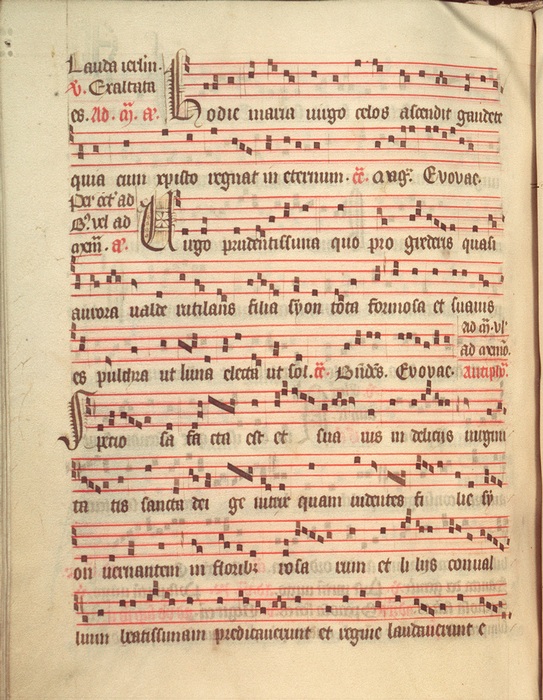 Lauda ierlm.
v. Exaltata
es. Ad. m. a. Hodie maria uirgo celos ascendit gaudete
quia cum xpisto regnat in eternum. Mag. Evovae.
Per oct ad
B. vel ad
mm. a. Uirgo prudentissima quo pro grederis quasi
aurora ualde rutilans filia syon tota formosa et suauis
Ad m. vl
ad
es pulchra ut luna electa ut sol. Bnds. Evovae. Antiph.
Speciosa facta est et sua uis in deliciis uirgini
ta tis sancta dei ge nitrix quam uidentes fi lie sy
on uernantem in floribz rosa rum et li liis conual
lium beatissimam predicauerunt et regine laudauerunt e